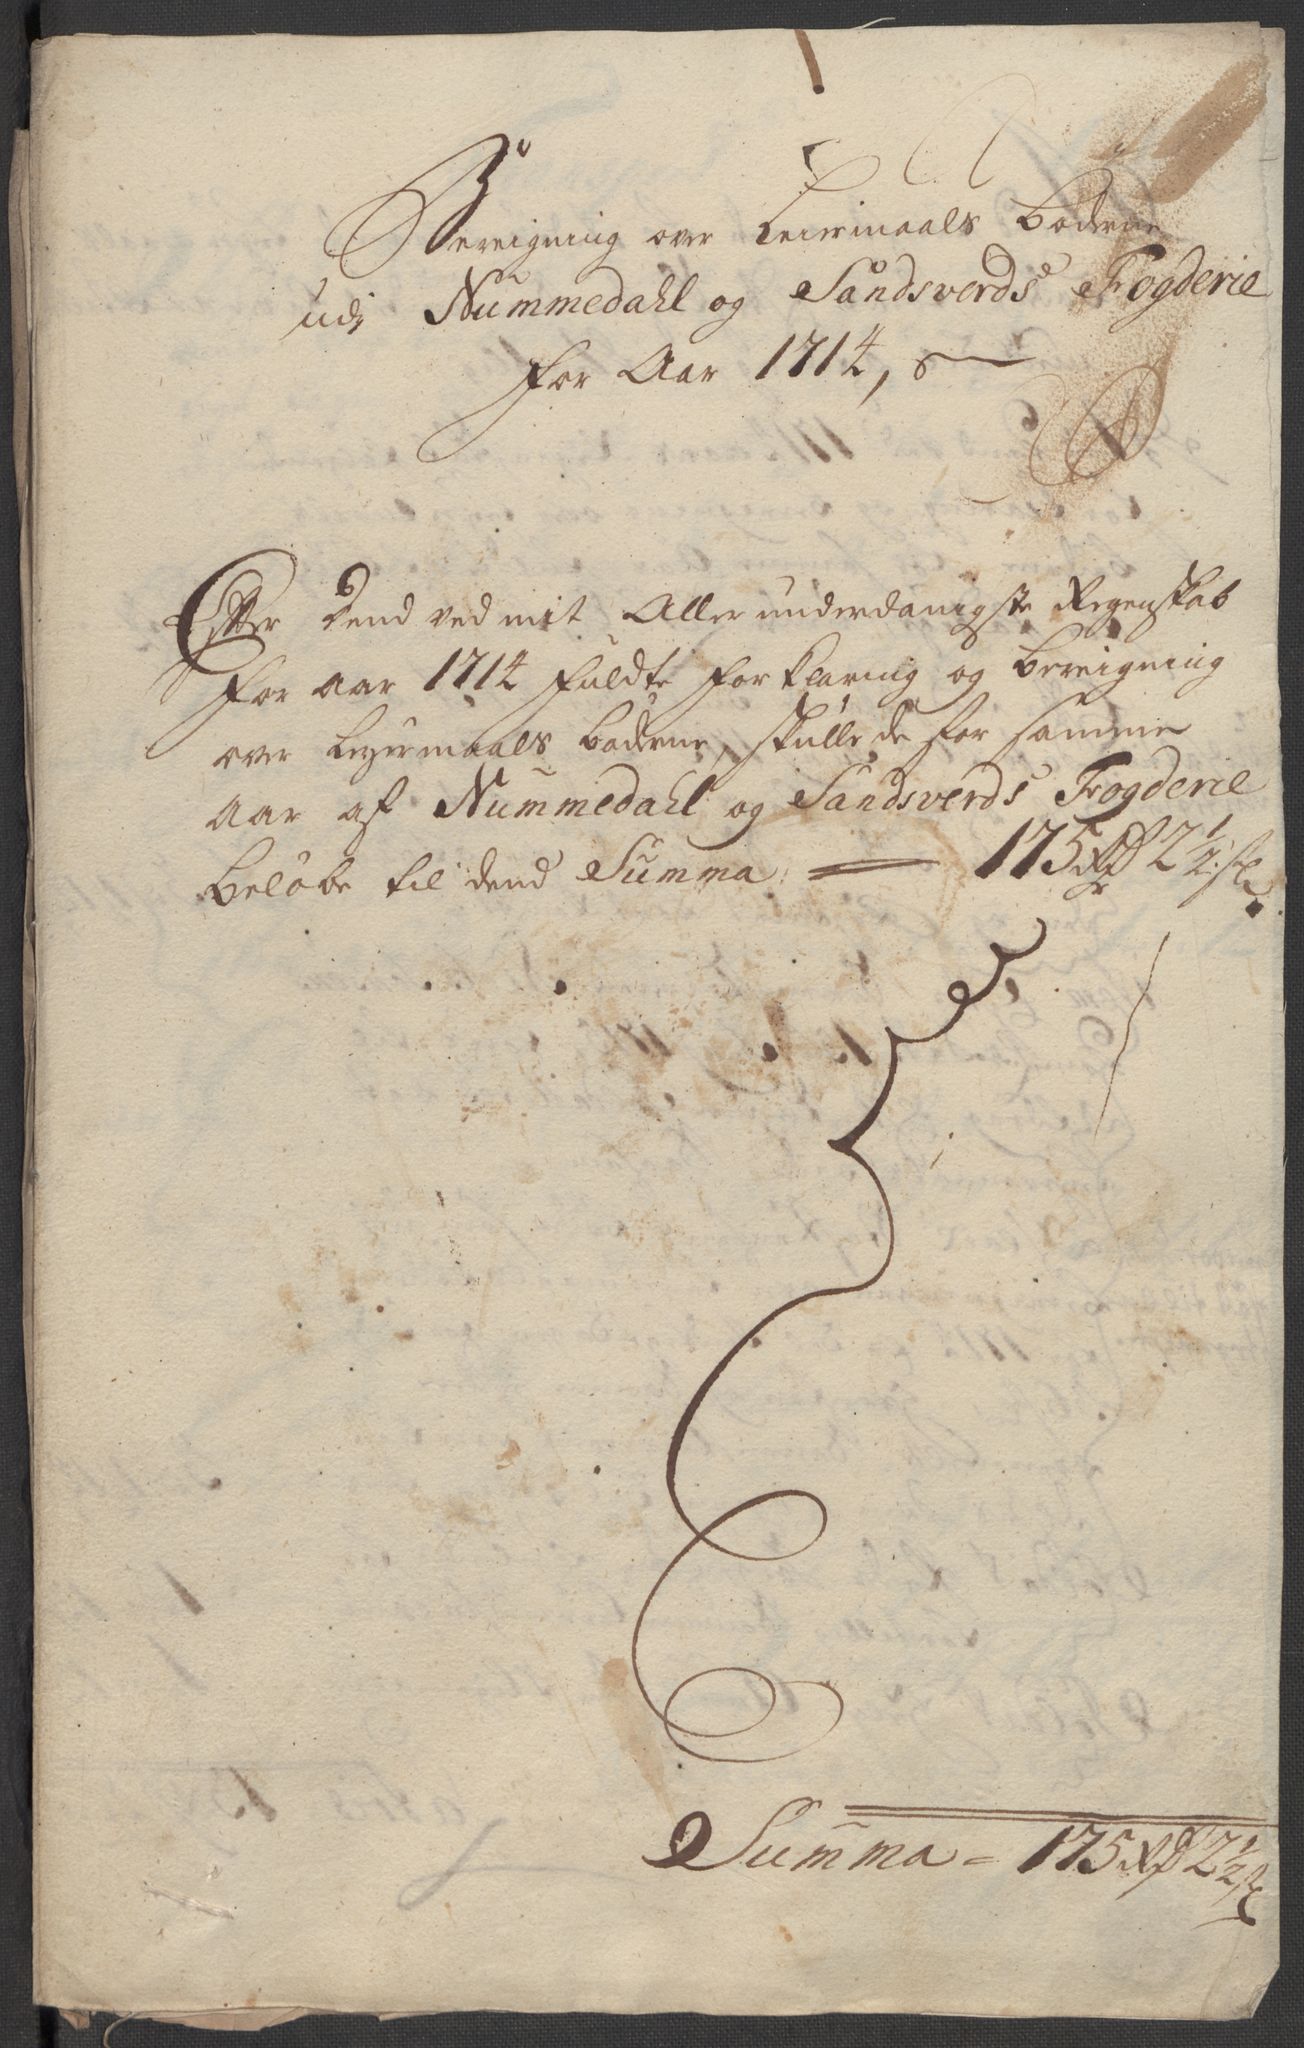 Bereigning over Leiermaals Bøderne
udj Nummedahl og Sandsverds Fogderie
for Aar 1714,
Efter dend ved mit Allerunderdanigste Regenskab
for aar 1714 fuldte forklaring og bereigning
over Leyermaals bøderne, skulle de for samme
aar af Nummedahl og Sandsverds Fogderie
beløbe til dend Summa 175 Rdr 2 1/2 sk
Summa = 175 Rd 2 1/2 sk